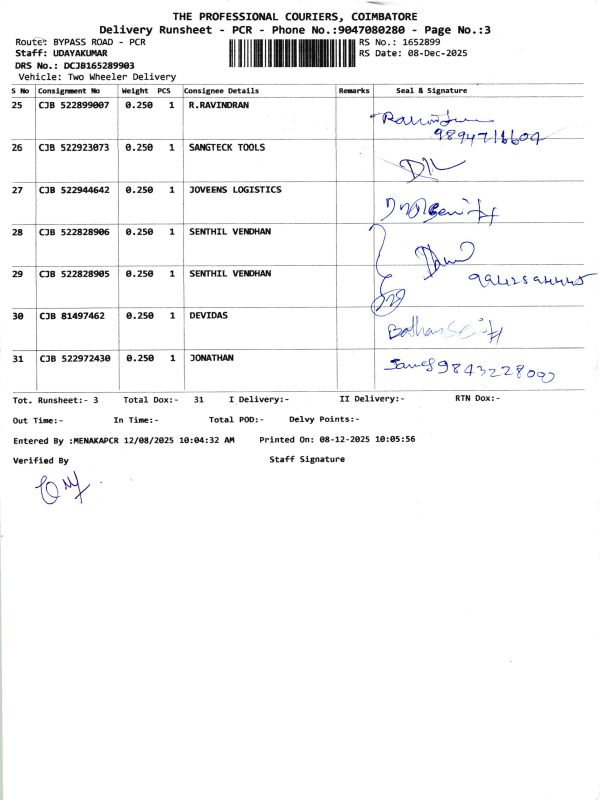 THE PROFESSIONAL COURIERS, COIMBATORE
Delivery Runsheet - PCR - Phone No.:9047080280 - Page No.:3
Route: BYPASS ROAD - PCR RS No.: 1652899
Staff: UDAYAKUMAR RS Date: 08-Dec-2025
DRS No.: DCJB165289903
Vehicle: Two Wheeler Delivery
S No Consignment No Weight PCS Consignee Details Remarks Seal & Signature
25 CJB 522899007 0.250 1 R.RAVINDRAN
26 CJB 522923073 0.250 1 SANGTECK TOOLS
27 CJB 522944642 0.250 1 JOVEENS LOGISTICS
28 CJB 522828906 0.250 1 SENTHIL VENDHAN
29 CJB 522828905 0.250 1 SENTHIL VENDHAN
30 CJB 81497462 0.250 1 DEVIDAS
31 CJB 522972430 0.250 1 JONATHAN
Tot. Runsheet:- 3 Total Dox:- 31 I Delivery:- II Delivery:- RTN Dox:-
Out Time:- In Time:- Total POD:- Delvy Points:-
Entered By :MENAKAPCR 12/08/2025 10:04:32 AM Printed On: 08-12-2025 10:05:56
Verified By Staff Signature